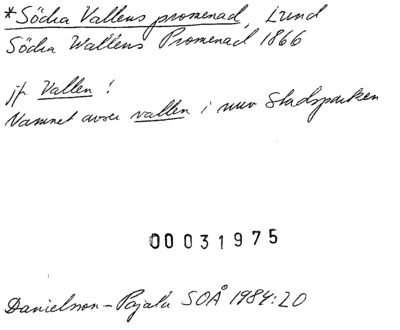 *Södra Vallens promenad, Lund
Södra Wallens Promenad 1866
jfr Vallen!
Namnet avser vallen i nuv Stadsparken
00031975
Danielsson-Pajala SOÅ 1984:20